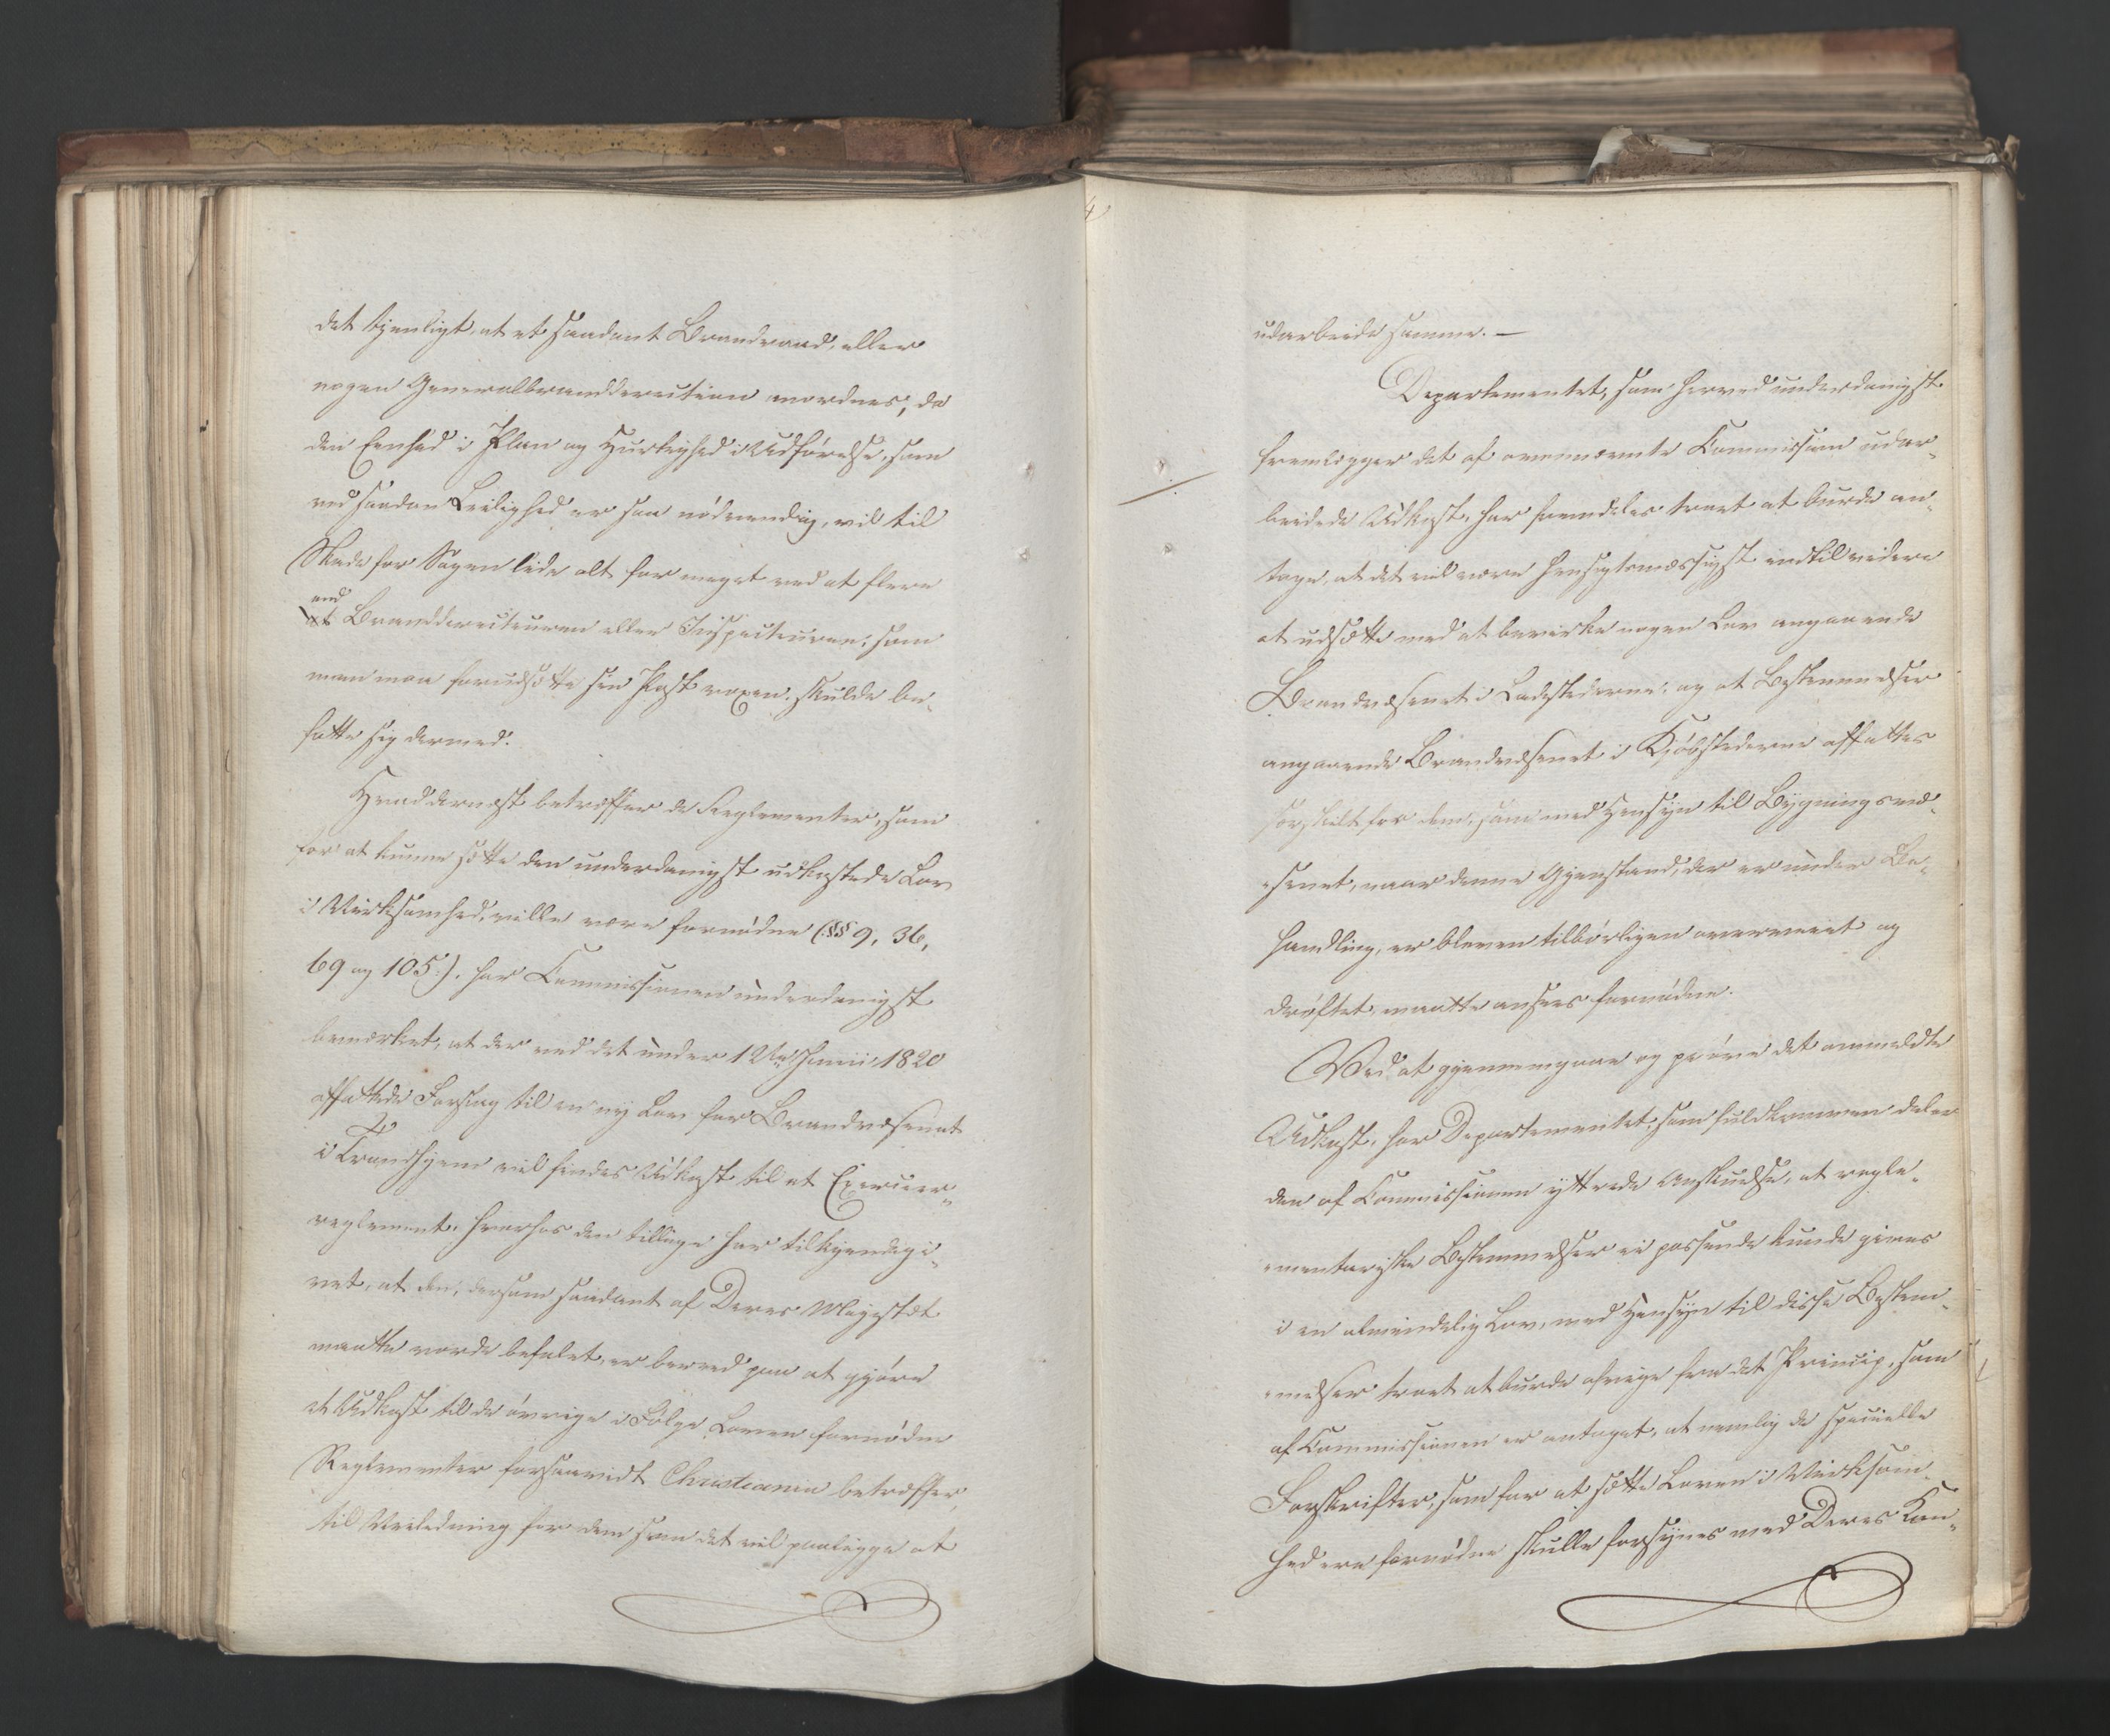 det tjenligt, at et saadant Brandraad, eller
nogen Generalbranddirection anordnes, da
den Eenhed i Plan og Hurtighed i Udførelse, som
ved saadan Leilighed er saa nødvendig, vil til
Skade for Sagen lide alt for meget ved at flere
end
Branddirecteuren eller Inspecteuren, som
man maa forudsætte sin Post voxen, skulde be-
fatte sig dermed.
Hvad dernæst betræffer de Reglementer, som
for at kunne sætte den underdanigst udkastede Lov
i Virksomhed, ville være fornødne (§§ 9, 36,
69 og 105.), har Commissionen underdanigst
bemærket, at der ved det under 1ste Junii 1820
affattede Forslag til en ny Lov for Brandvæsenet
i Trondhjem vil findes Udkast til et Exerceer-
reglement, hvorhos den tillige har tilkjendegi-
vet, at den, dersom saadant af Deres Majestæt
maatte vorde befalet, er bered paa at gjøre
et Udkast til de øvrige i Følge Loven fornødne
Reglementer forsaavidt Christiania betræffer,
til Veiledning for dem som det vil paaligge at
udarbeide samme. —
Departementet, som herved underdanigst
fremlægger det af ovennævnte Commission udar-
beidede Udkast, har fremdeles troet at burde an-
tage, at det vil være hensigtsmæssigst indtil videre
at udsætte med at bevirke nogen Lov angaaende
Brandvæsenet i Ladestederne, og at Bestemmelser
angaaende Brandvæsenet i Kjøbstederne affattes
særskilt for dem, som med Hensyn til Bygningsvæ-
senet, naar denne Gjenstand, der er under Be-
handling, er bleven tilbørligen overveiet og
drøftet, maatte ansees fornødne.
Ved at gjennemgaae og prøve det ommeldte
Udkast, har Departementet, som fuldkommen deler
den af Commissionen yttrede Anskuelse, at regle-
mentariske Bestemmelser ei passende kunde gives
i en almindelig Lov, med Hensyn til disse Bestem-
melser troet at burde afvige fra det Princip, som
af Commissionen er antaget, at nemlig de specielle
Forskrifter, som for at sætte Loven i Virksom-
hed ere fornødne skulle forsynes med Deres Kon-